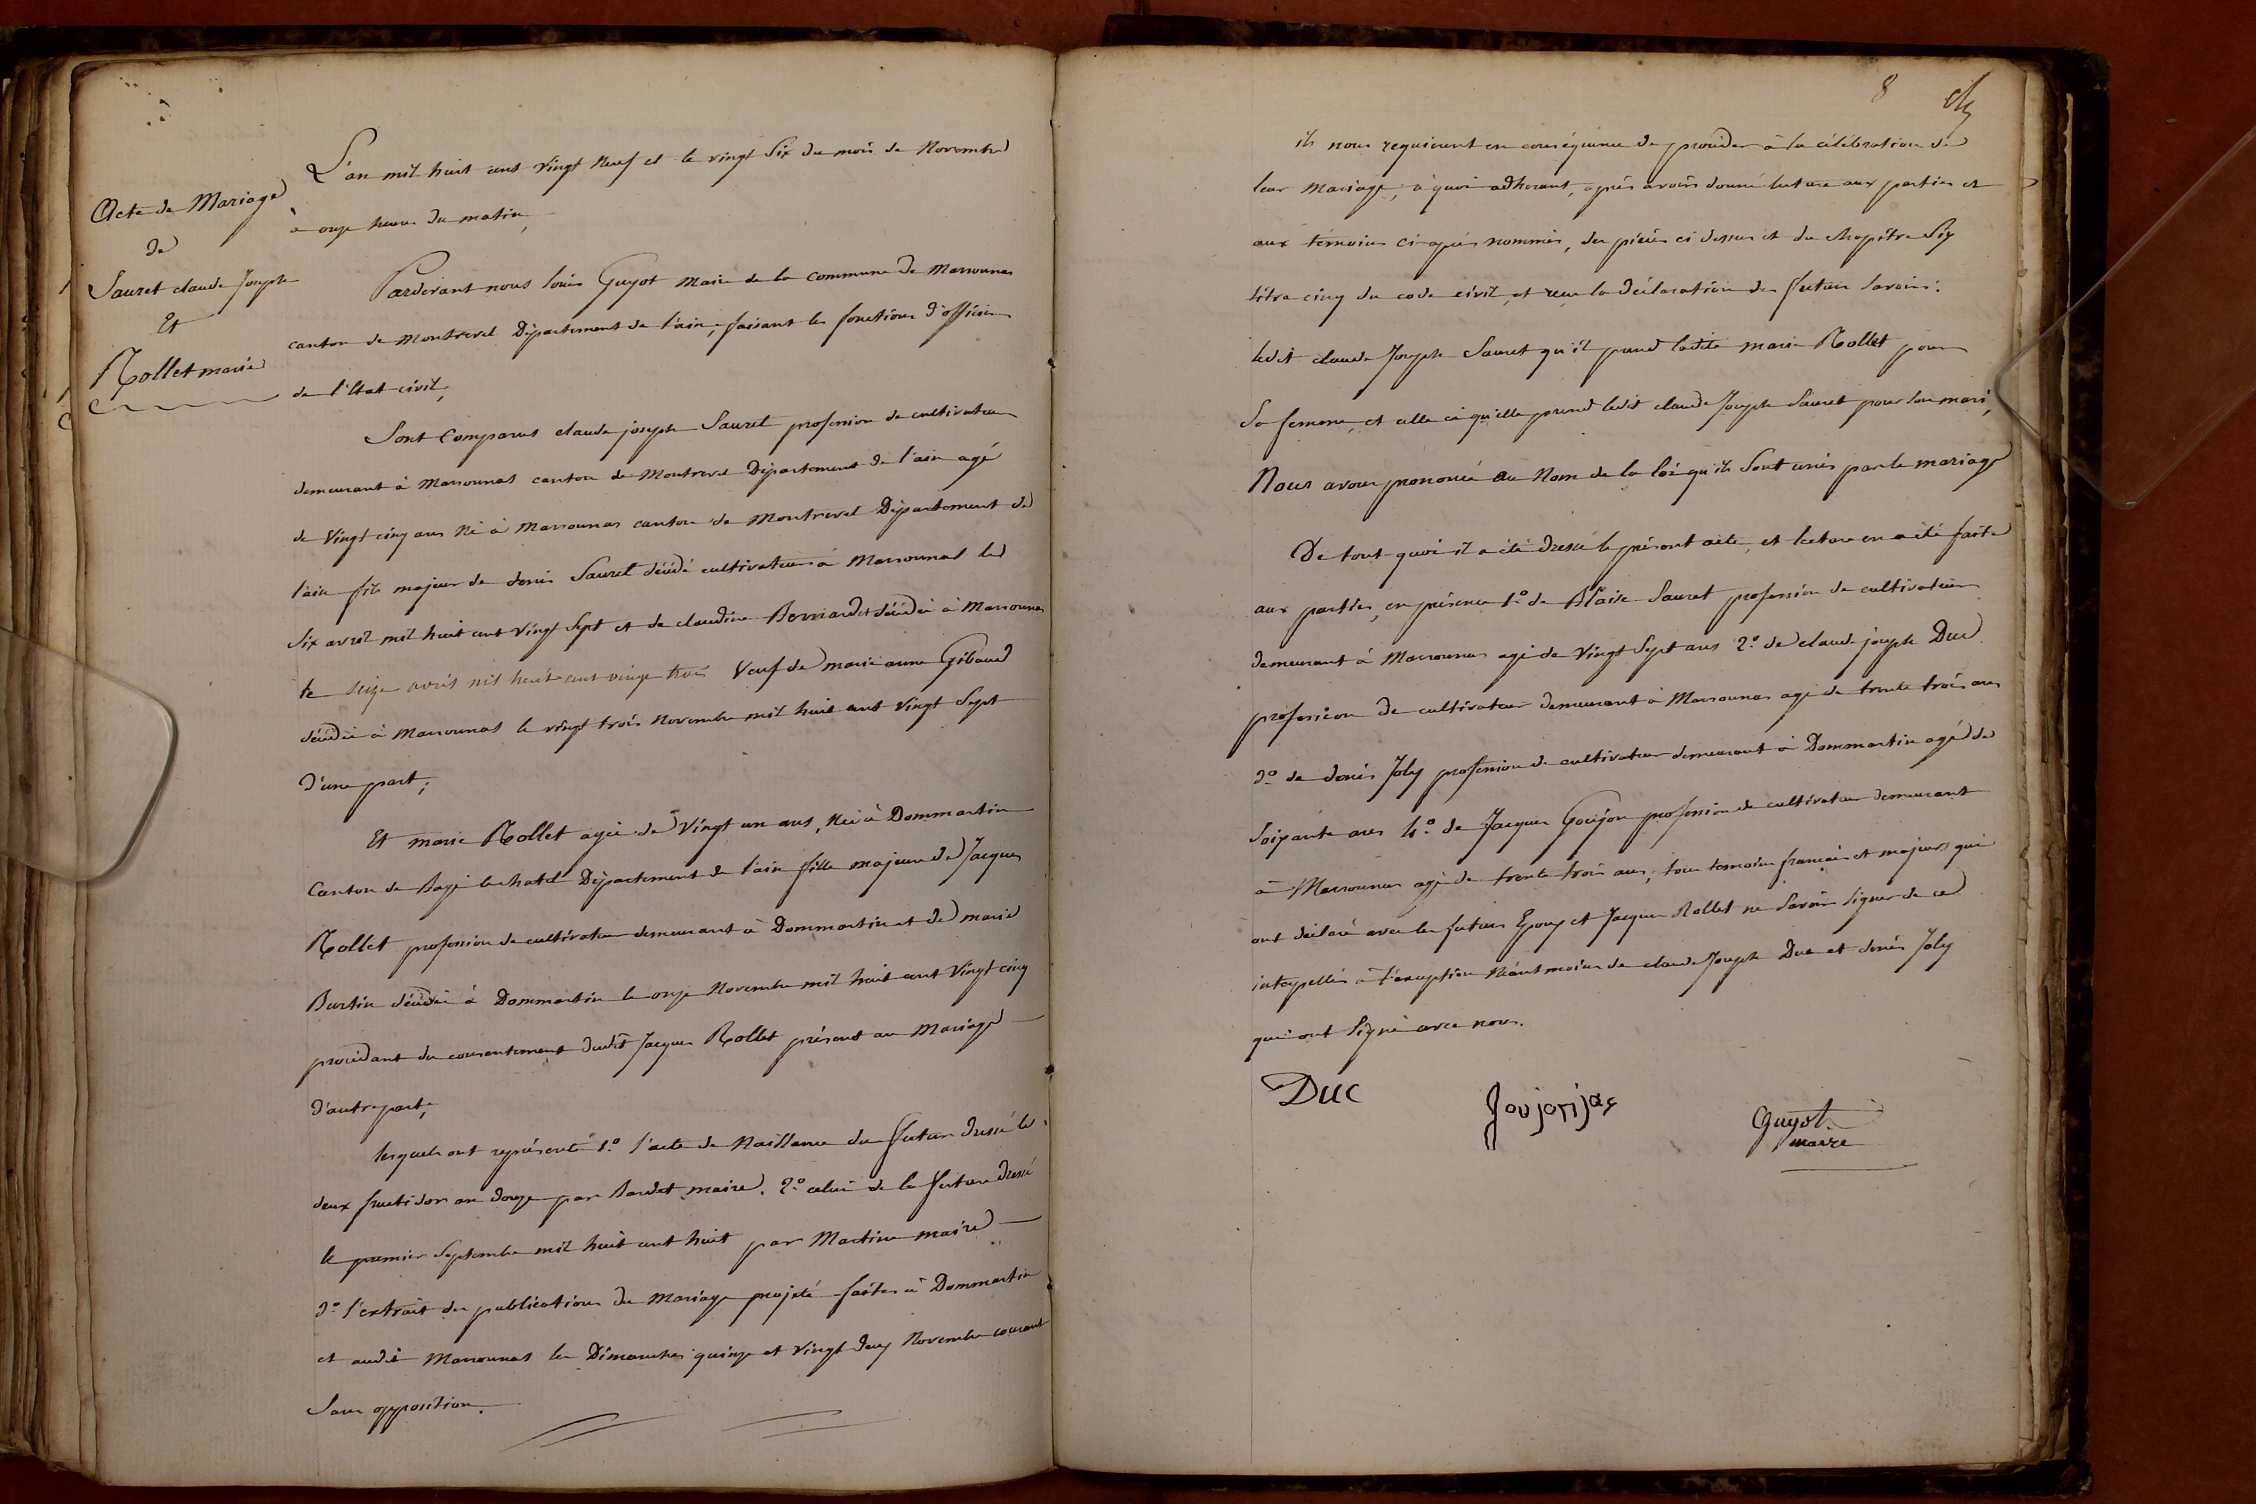 Acte de Mariage
de
Sauret claude Joseph
Et
Rollet marie
L'an mil huit cent vingt Neuf et le vingt Six du mois de Novembre
à onze heures du matin,
Pardevant nous louis Guyot Maire de la Commune de Marsonnas
canton de Montrevel Département de l'ain, faisant les fonctions d'officier
de l'Etat civil,
Sont Comparus claude joseph Sauret profession de cultivateur
demeurant à Marsonnas canton de Montrevel Département de l'ain agé
de Vingt cinq ans Né à Marsonnas canton de Montrevel Département de
l'ain fils majeur de denis Sauret décédé cultivateur à Marsonnas le
Six avril mil huit cent Vingt Sept et de claudine Bernardet décédée à Marsonnas
le seize avril mil huit cent vingt trois Veuf de marie anne Gibaud
décédée à Marsonnas le vingt trois Novembre mil huit cent Vingt Sept
D'une part;
Et marie Rollet agée de Vingt un ans, Née à Dommartin
Canton de Bagé le chatel Département de l'ain fille majeure de Jacques
Rollet profession de cultivateur demeurant à Dommartin et de marie
Burtin décédée à Dommartin le onze Novembre mil huit cent Vingt cinq
procédant du consentement dudit Jacques Rollet présent au Mariage
D'autre part,
lesquels ont représenté 1.o l'acte de Naissance du futur dressé le
deux fructidor an douze par Bardet maire. 2.o celui de la future dressé
le premier Septembre mil huit cent huit par Martin maire
3.o l'extrait des publications du Mariage projeté faites à Dommartin
et audit Marsonnas les Dimanches quinze et Vingt deux Novembre courant
Sans opposition.
8
ils nous requièrent en conséquence de procéder à la célébration de
leur Mariage; à quoi adhérant, après avoir donné lecture aux parties et
aux témoins ci-après nommés, des pièces ci dessus et du chapitre Six
titre cinq du code civil, et reçu la déclaration des futurs Savoir:
ledit claude Joseph Sauret qu'il prend ladite marie Rollet pour
Sa femme, et celle ci qu'elle prend ledit claude Joseph Sauret pour Son mari,
Nous avons prononcé au Nom de la loi qu'ils Sont unis par le mariage
De tout quoi il a été dressé le présent acte, et lecture en a été faite
aux parties, en présence 1.o de Blaise Sauret profession de cultivateur
demeurant à Marsonnas agé de Vingt Sept ans 2.o de claude joseph Duc
profession de cultivateur demeurant à Marsonnas agé de trente trois ans
3.o de denis Joly profession de cultivateur demeurant à Dommartin agé de
Soixante ans 4.o de Jacques Goujon profession de cultivateur demeurant
à Marsonnas agé de trente trois ans, tous temoins français et majeurs qui
ont déclaré avec les futurs Epoux et Jacques Rollet ne Savoir Signer de ce
interpellés à l'exception Néantmoins de claude Joseph Duc et denis Joly
qui ont Signé avec nous.
Duc
Guyot
maire